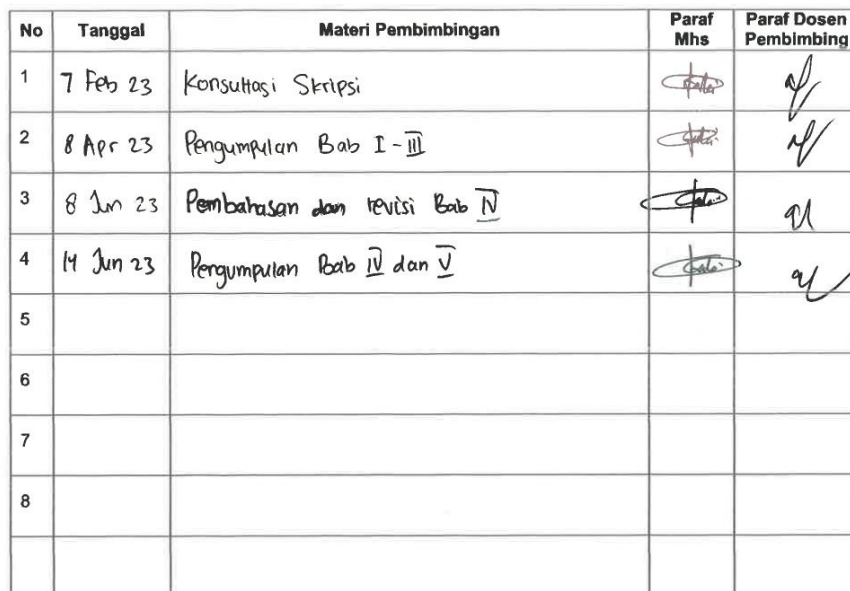 No Tanggal Materi Pembimbingan Paraf Mhs Paraf Dosen Pembimbing
1 7 Feb 23 Konsultasi Skripsi
2 8 Apr 23 Pengumpulan Bab I-III
3 8 Jun 23 Pembahasan dan revisi Bab IV
4 14 Jun 23 Pengumpulan Bab IV dan V
5
6
7
8